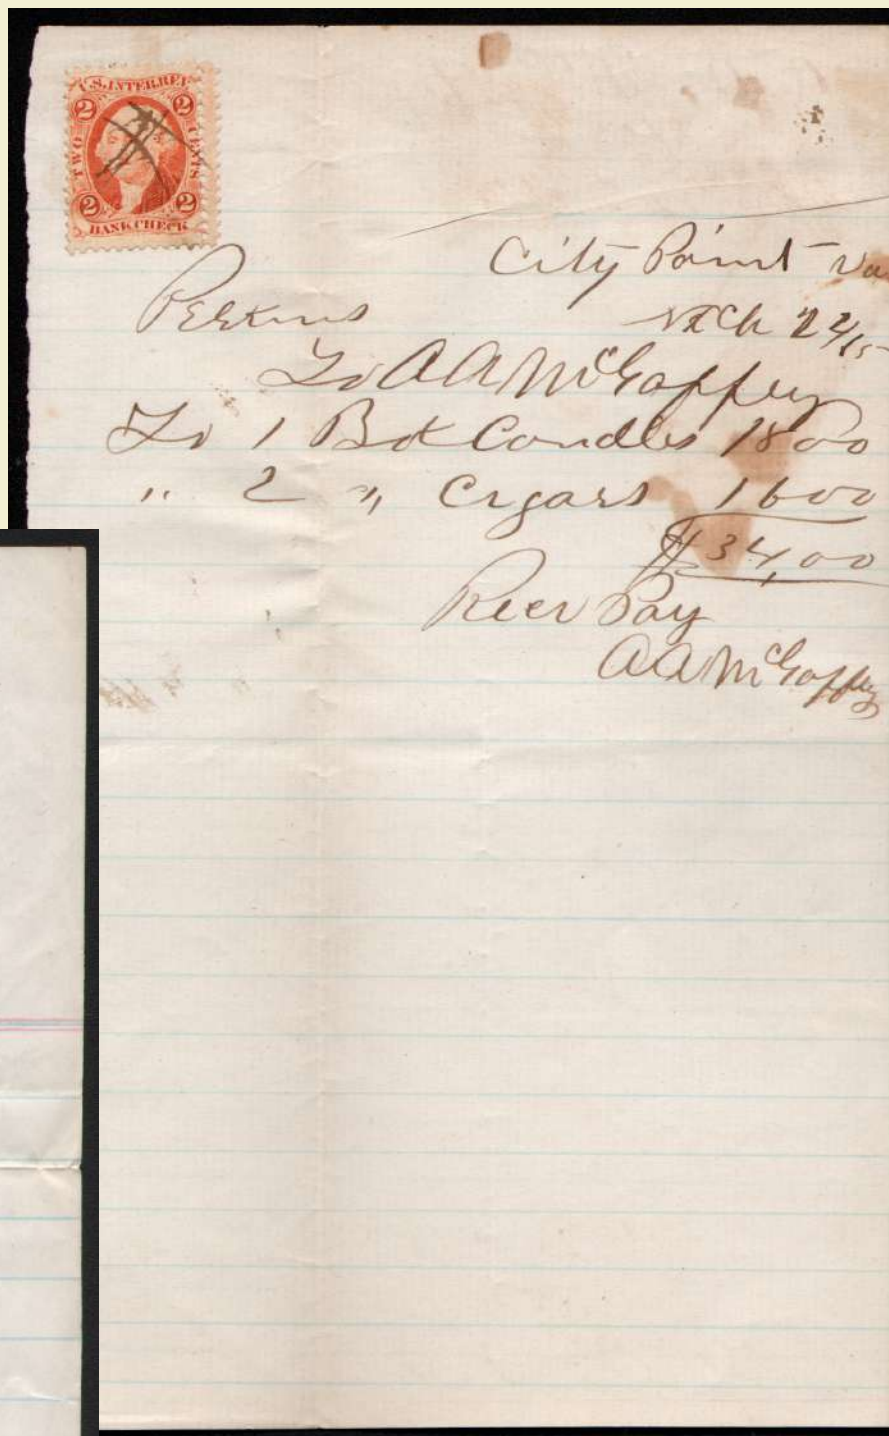 U.S. INTER. REV.
2 2
TWO CENTS
2 2
BANK CHECK
City Point Va
Perkins Mch 22/65
To A A McGaffey
To 1 Bx Candles 18 00
" 2 " Cigars 16 00
$34,00
Recd Pay
A A McGaffey